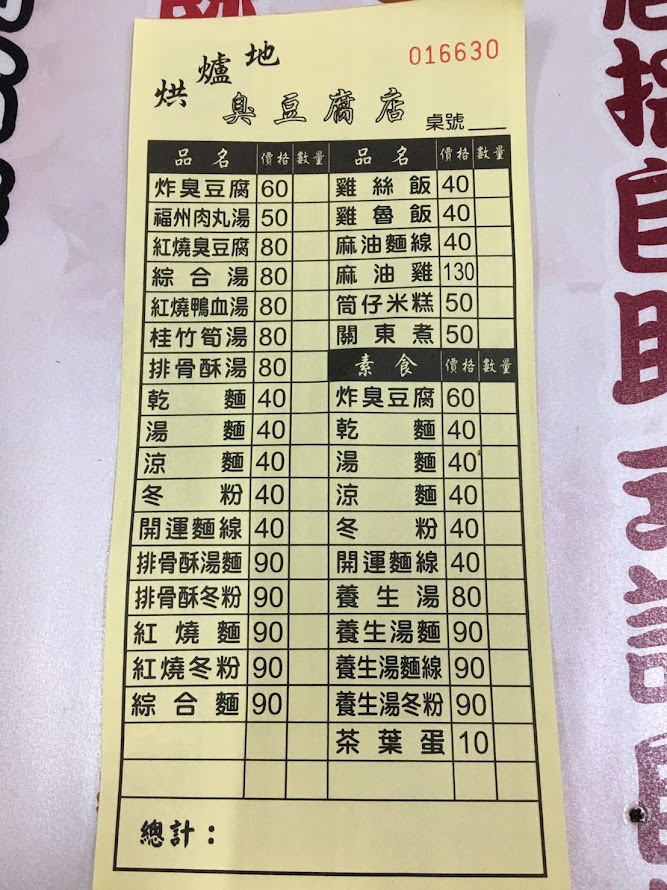 016630
烘爐地
臭豆腐店
桌號
品名 價格 數量
炸臭豆腐 60
福州肉丸湯 50
紅燒臭豆腐 80
綜合湯 80
紅燒鴨血湯 80
桂竹筍湯 80
排骨酥湯 80
乾麵 40
湯麵 40
涼麵 40
冬粉 40
開運麵線 40
排骨酥湯麵 90
排骨酥冬粉 90
紅燒麵 90
紅燒冬粉 90
綜合麵 90
品名 價格 數量
雞絲飯 40
雞魯飯 40
麻油麵線 40
麻油雞 130
筒仔米糕 50
關東煮 50
素食 價格 數量
炸臭豆腐 60
乾麵 40
湯麵 40
涼麵 40
冬粉 40
開運麵線 40
養生湯 80
養生湯麵 90
養生湯麵線 90
養生湯冬粉 90
茶葉蛋 10
總計：
自助